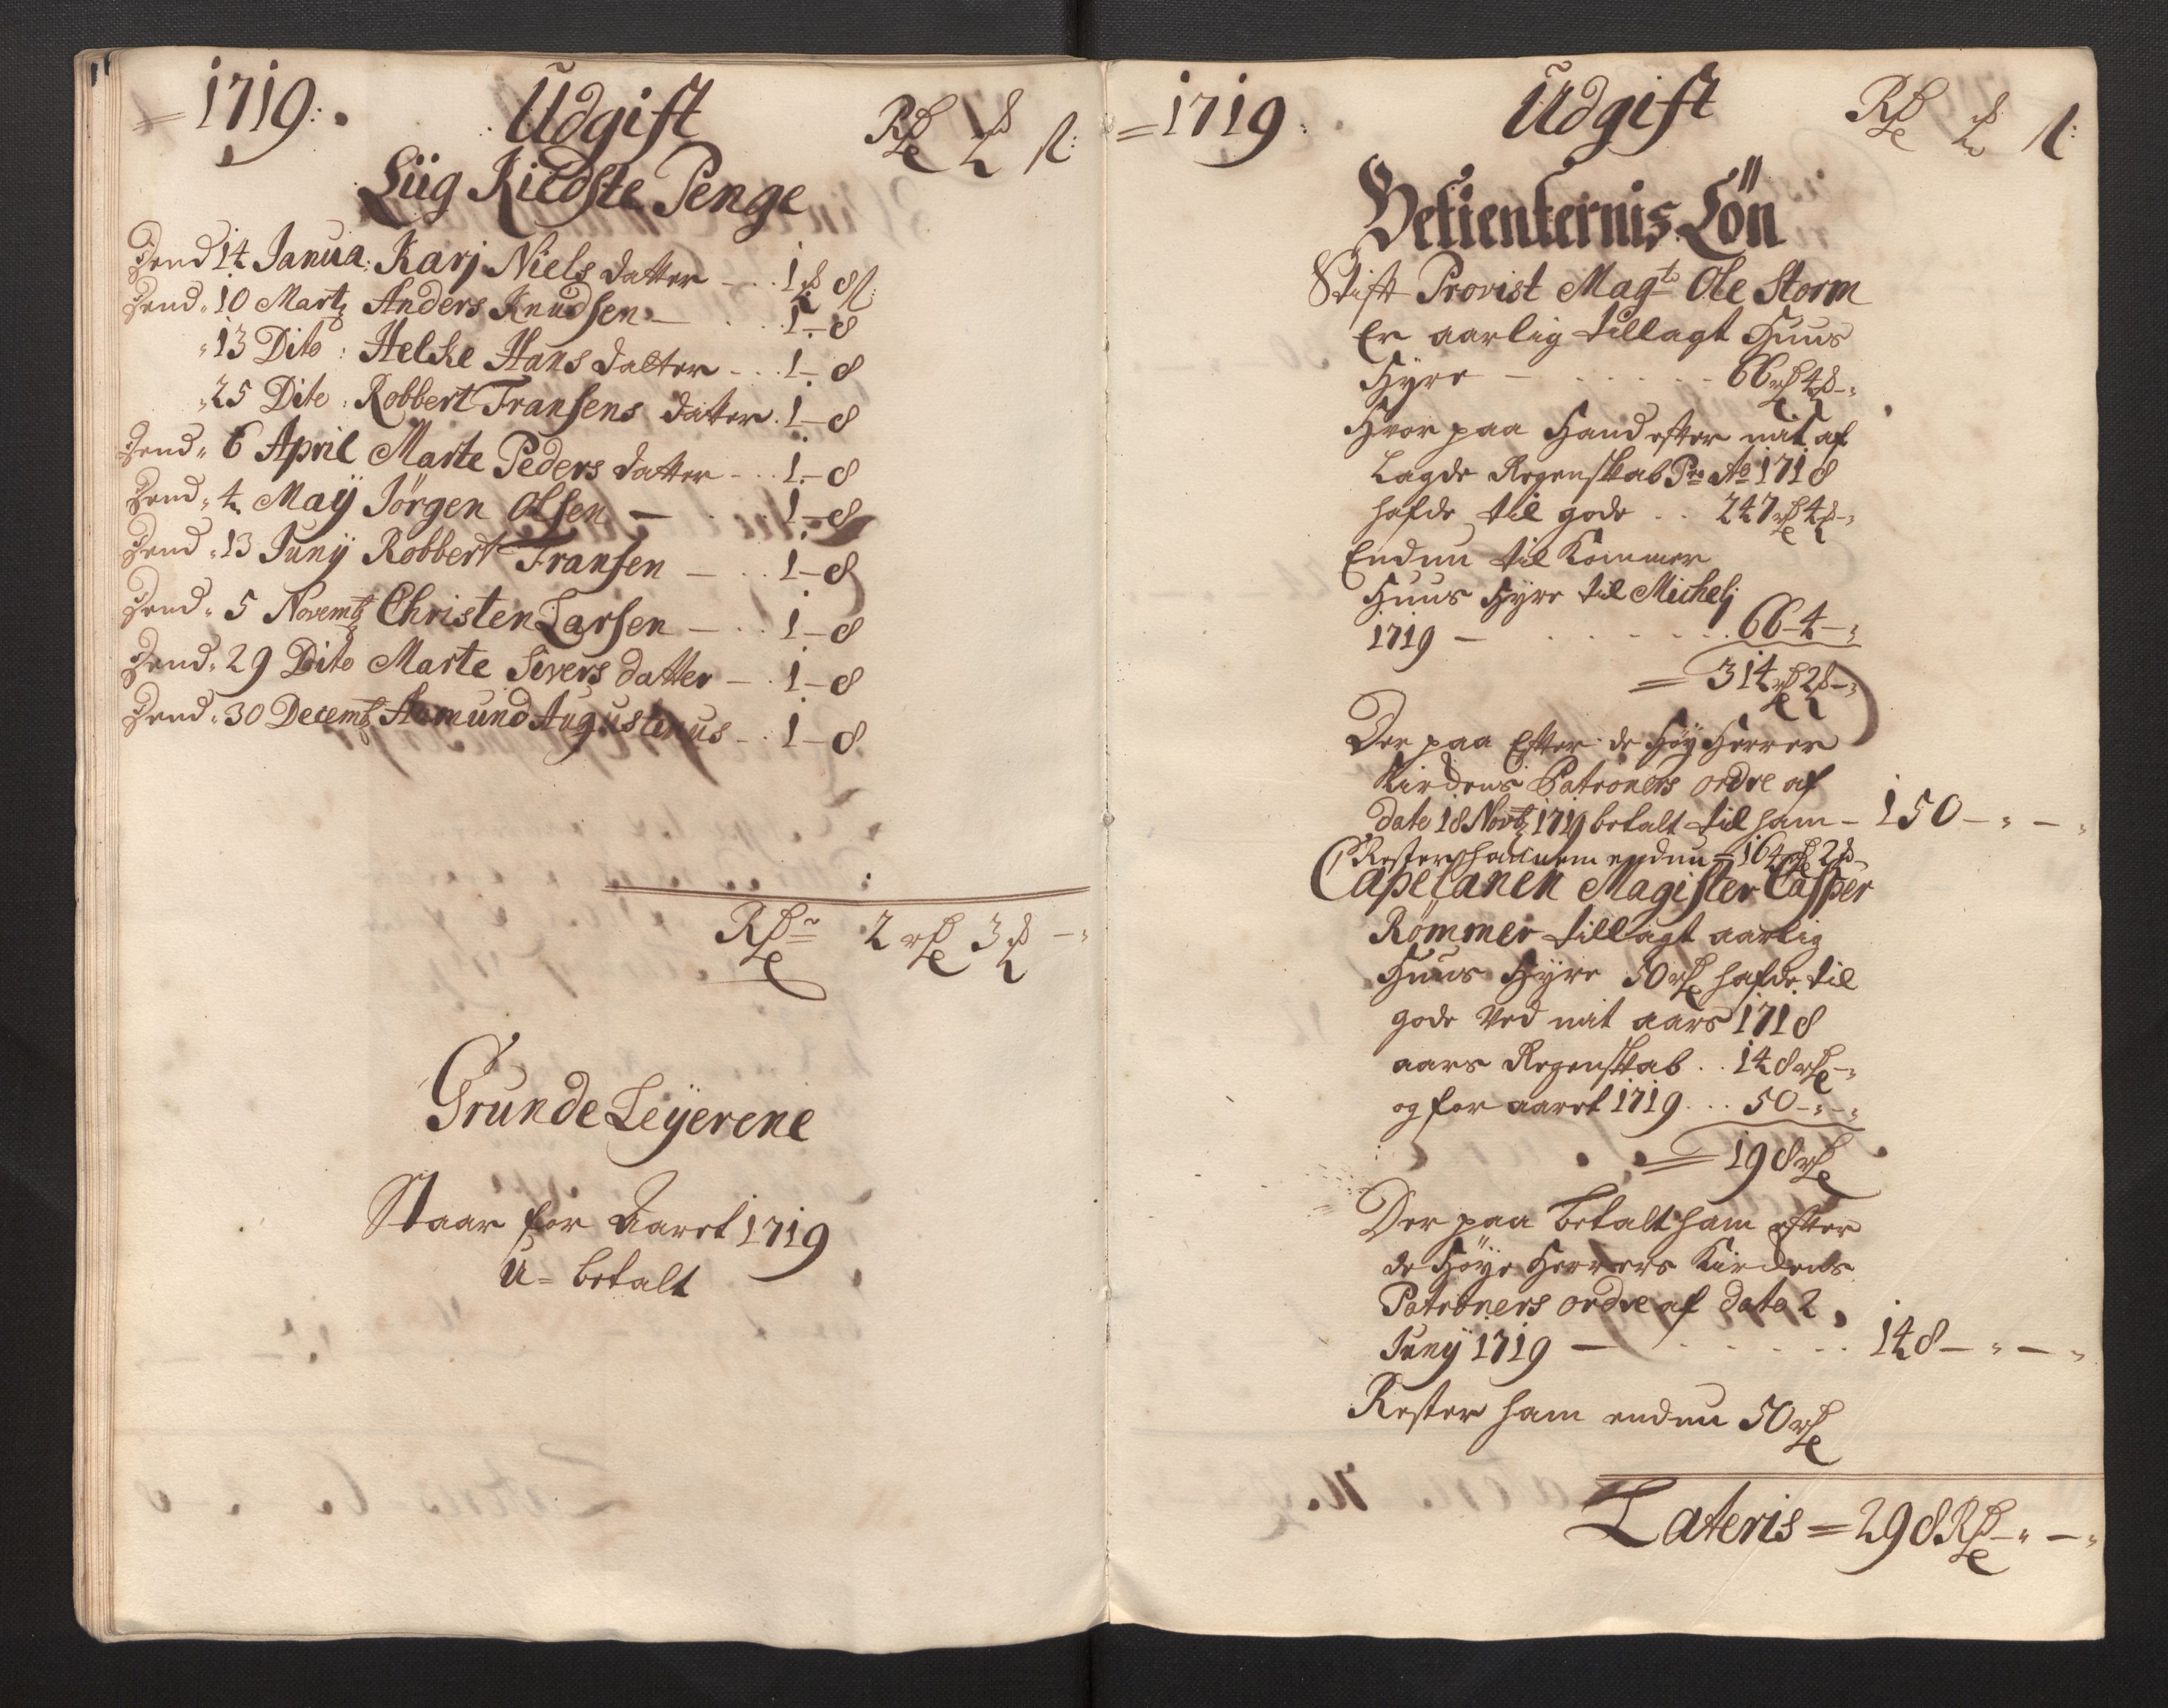 1719. Udgift Rdr ß
Liig Kiedste Penge
Dend 14 Janua: Karj Niels datter - .. 1 8
Dend 10 Martz Anders Knudsen - .. 1-8
13 Dito: Helche Hans datter - .. 1-8
25 Dito: Robbert Fransens datter. 1-8
Dend 6 April Marte Peders datter - .. 1-8
Dend 4 Maÿ Jörgen Olsen - .. 1-8
Dend 13 Junÿ Robbert Fransen - .. 1-8
Dend 5 Novembr Christen Larsen - .. 1-8
Dend 29 Dito Marte Sivers datter - . 1-8
Dend 30 Decembr Aamund Augustinus - . 1-8
Rdr 2 rd 3 -
Grunde Leÿerene
Staar for Aaret 1719
U= betalt
1719 Udgift Rdr ß
Betienternis Lön
Stift Provist Magr Ole Storm
Er aarlig tillagt Huus
Hyre - . . . 66 rd 4 -
Hvor paa Hand efter mit af
Lagde Regenskab Pro Ao 1718
hafde til gode .. 247 rd 4 -
Endnu til Kommer
Huus Hyre til Michelj
1719 - . . . 66-4-
= 314 rd 2 -
Der paa Efter de Höÿ Herrer
Kirdens Patroners ordre af
dato 18 Novbr 1719 betalt til ham - 150 - " - "
Rester hannem endnu = 164 rd 2 -
Capelanen Magister Casper
Römmer tillagt aarlig
Huus Hÿre 50 rd hafde til
gode Ved mit aars 1718
aars Regenskab .. 148 rd -
og for aaret 1719 ... 50 - " - "
= 198 rd
Der paa betalt ham efter
de Höÿe Herrers Kirdens
Patroners ordre af dato 2
Junÿ 1719 - . . . 148 - " - "
Rester ham endnu 50 rd
Lateris = 298 Rd - " - "